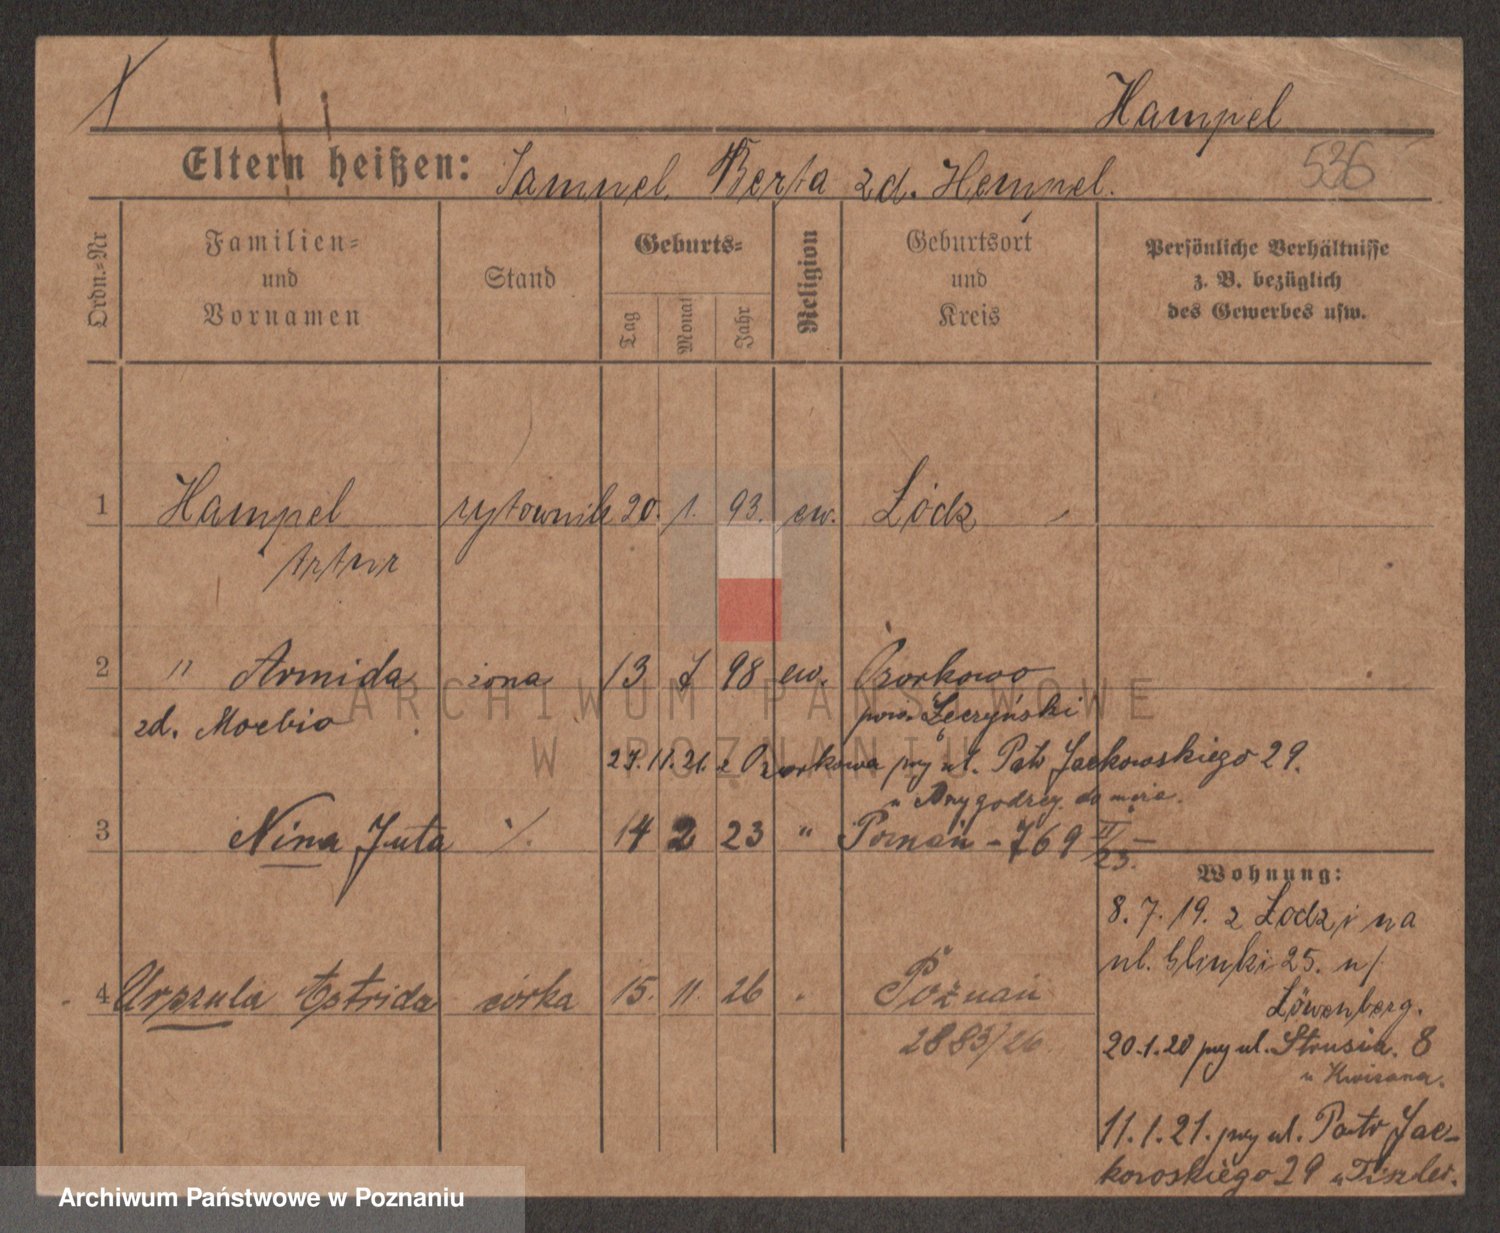 Hampel
536
Eltern heißen: Samuel Berta zd. Hempel.
Ordn.=Nr
Familien=
und
Vornamen
Stand
Geburts=
Tag
Monat
Jahr
Religion
Geburtsort
und
Kreis
Persönliche Verhältnisse
z. B. bezüglich
des Gewerbes usw.
1 Hampel rytownik 20. 1. 93. ew. Łódź
Artur
2 " Armida żona 13 98 ew. Ozorkowo
zd. Moebio pow. Łęczyński
ARCHIWUM PAŃSTWOWE
W POZNANIU
27.11.21. z Ozorkowa przy ul. Patr Jackowskiego 29.
3 Nina Juta ./. 14 2 23 " Poznań - 769 II/23.
Wohnung:
8.7.19. z Łodzi na
ul. Glinki 25. u/
Löwenberg.
4 Urszula Astrida córka 15. 11. 26 " Poznań
2883/26.
20.1.20 przy ul. Strusia. 8
11.1.21. przy ul. Patr Jac-
kowskiego 29 u Tiszler.
Archiwum Państwowe w Poznaniu